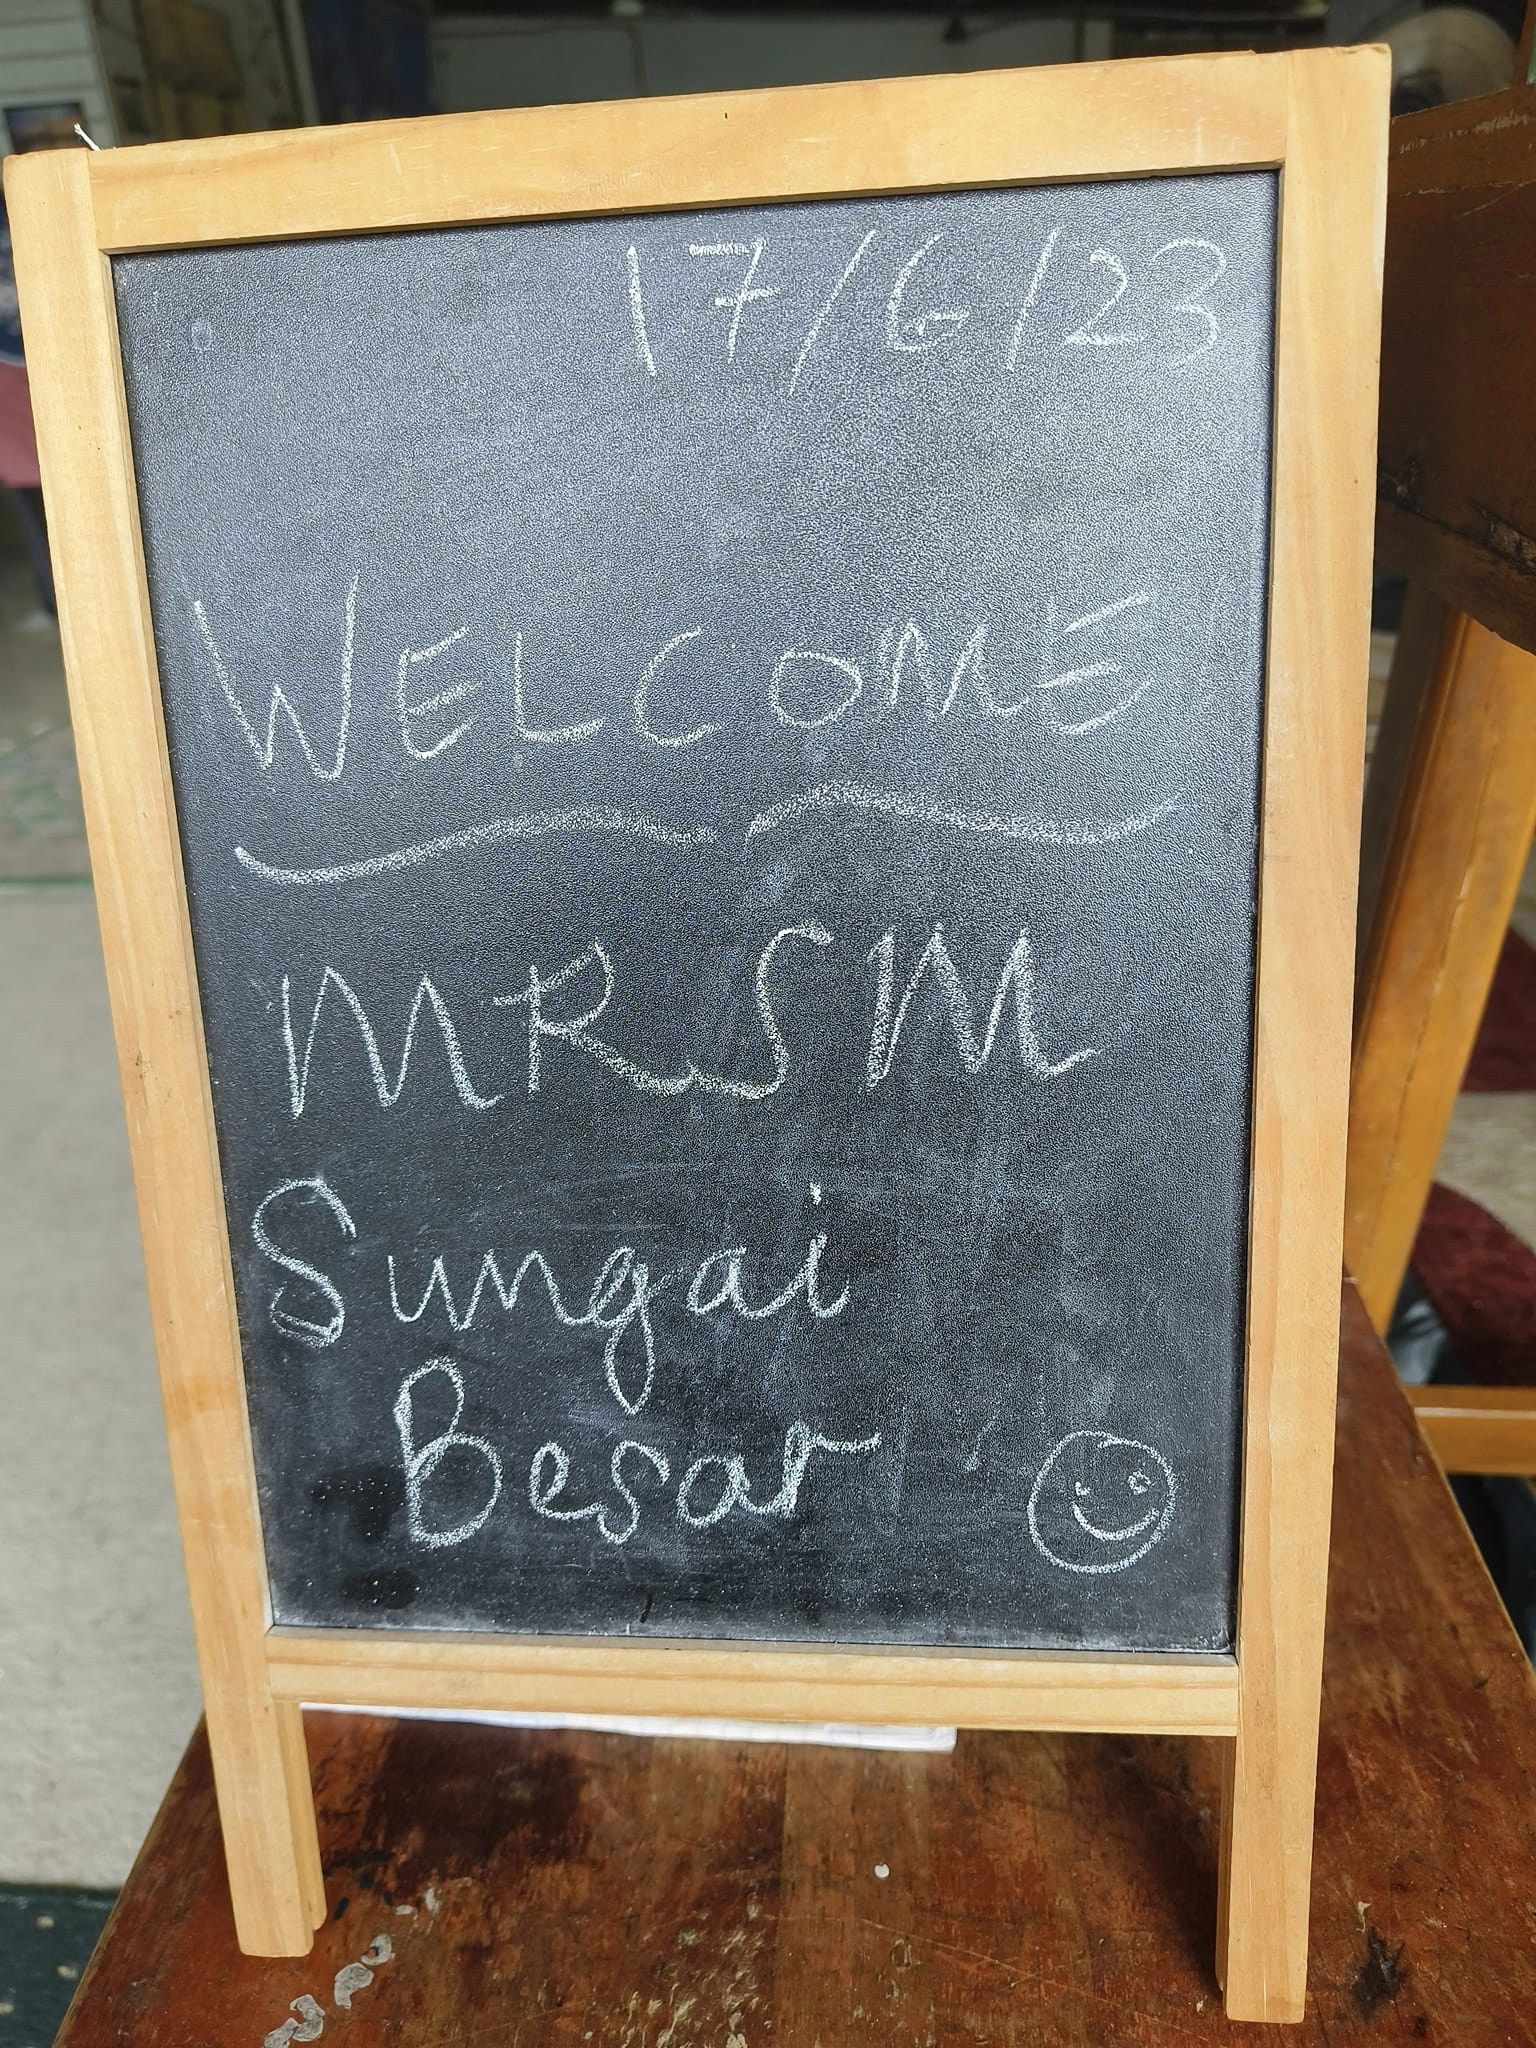 17/6/23
WELCOME
MRSM
Sungai
Besar